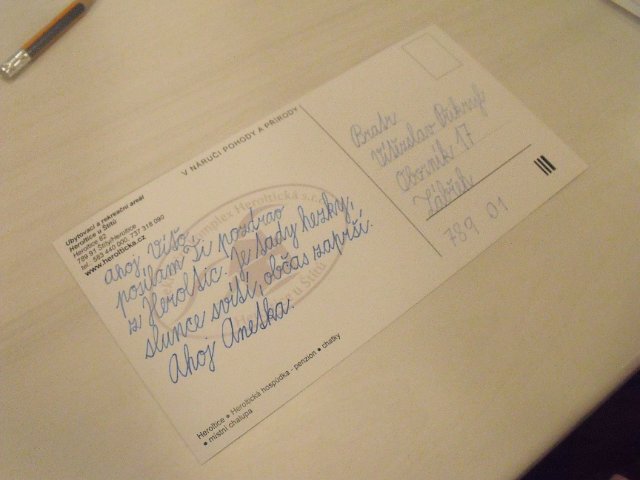 V NÁRUČÍ POHODY A PŘÍRODY
Ubytovací a rekreační areál
Heroltice u Štítů
Heroltice 62
789 91 Štíty/Heroltice
tel.: 583 440 000, 737 318 090
www.herolticka.cz
Komplex Heroltická s.r.o.
u Štítů
ahoj Víťo
posílám ti pozdrav
z Heroltic. Je tady hezky,
slunce svítí, občas zaprší.
Ahoj Anežka.
Bratr
Vítězslav
Oborník 17
Zábřeh
789 01
Heroltice • Heroltická hospůdka - penzion • chatky
• místní chalupa